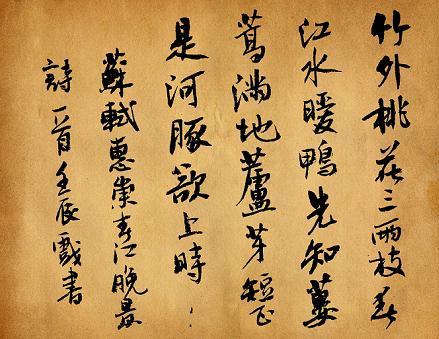 竹外桃花三兩枝春
江水暖鴨先知蔞
蒿滿地蘆芽短正
是河豚欲上時
蘇軾惠崇春江晚景
詩一首壬辰戲書